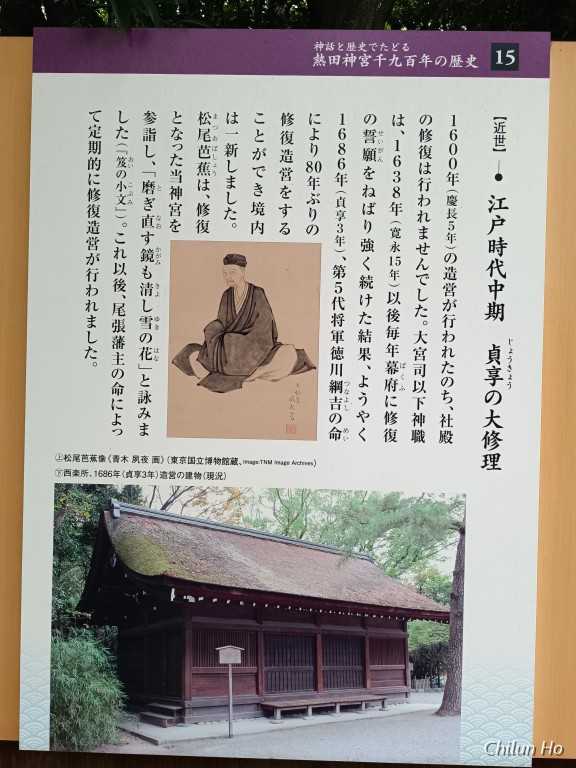 神話と歴史でたどる
熱田神宮千九百年の歴史
15
【近世】
江戸時代中期 貞享の大修理
じょうきょう
1600年(慶長5年)の造営が行われたのち、社殿
の修復は行われませんでした。大宮司以下神職
は、1638年(寛永15年)以後毎年幕府に修復
ばくふ
の誓願をねばり強く続けた結果、ようやく
せいがん
1686年(貞享3年)、第5代将軍徳川綱吉の命
つなよし めい
により80年ぶりの
修復造営をする
ことができ境内
は一新しました。
松尾芭蕉は、修復
まつおばしょう
となった当神宮を
参詣し、「磨ぎ直す鏡も清し雪の花」と詠みま
と なお かがみ きよ ゆき はな
した(『笈の小文』)。これ以後、尾張藩主の命によっ
おい こぶみ
て定期的に修復造営が行われました。
上松尾芭蕉像《青木 夙夜 画》(東京国立博物館蔵、Image:TNM Image Archives)
下西楽所、1686年(貞享3年)造営の建物(現況)
Chilun Ho